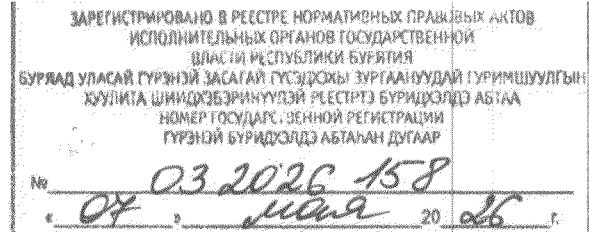 ЗАРЕГИСТРИРОВАНО В РЕЕСТРЕ НОРМАТИВНЫХ ПРАВОВЫХ АКТОВ
ИСПОЛНИТЕЛЬНЫХ ОРГАНОВ ГОСУДАРСТВЕННОЙ
ВЛАСТИ РЕСПУБЛИКИ БУРЯТИЯ
БУРЯАД УЛАСАЙ ГҮРЭНЭЙ ЗАСАГАЙ ГҮЙСЭДХЭХЫ ЗУРГААНУУДАЙ ГУРИМШУУЛГЫН
ХУУЛИТА ШИИДХЭБЭРИНҮҮДЭЙ РЕЕСТРТЭ БҮРИДХЭЛДЭ АБТАА
НОМЕР ГОСУДАРСТВЕННОЙ РЕГИСТРАЦИИ
ГҮРЭНЭЙ БҮРИДХЭЛДЭ АБТАҺАН ДУГААР
№ 03 2026 158
« 07 » мая 20 26 г.